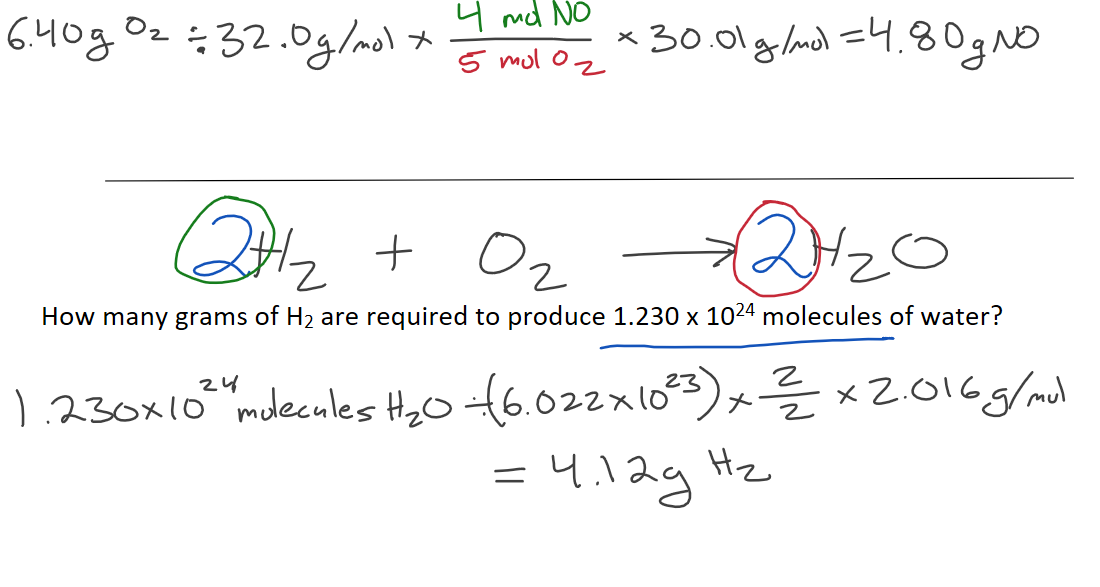 6.40g O₂ ÷ 32.0g/mol × 4 mol NO / 5 mol O₂ × 30.01g/mol = 4.80g NO
2H₂ + O₂ → 2H₂O
How many grams of H₂ are required to produce 1.230 x 10²⁴ molecules of water?
1.230×10²⁴ molecules H₂O ÷(6.022×10²³) × 2/2 × 2.016g/mol
= 4.12g H₂